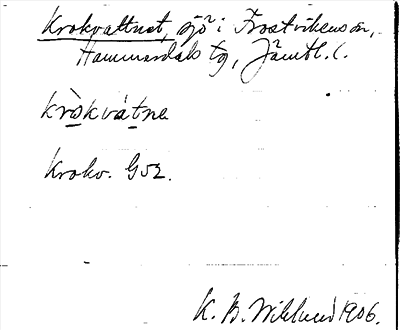 Krokvattnet, sjö i Frostvikens sn,
Hammerdals tg, Jämtl. l.
kròkvátne
Krokv. G52.
K. B. Wiklund 1906.